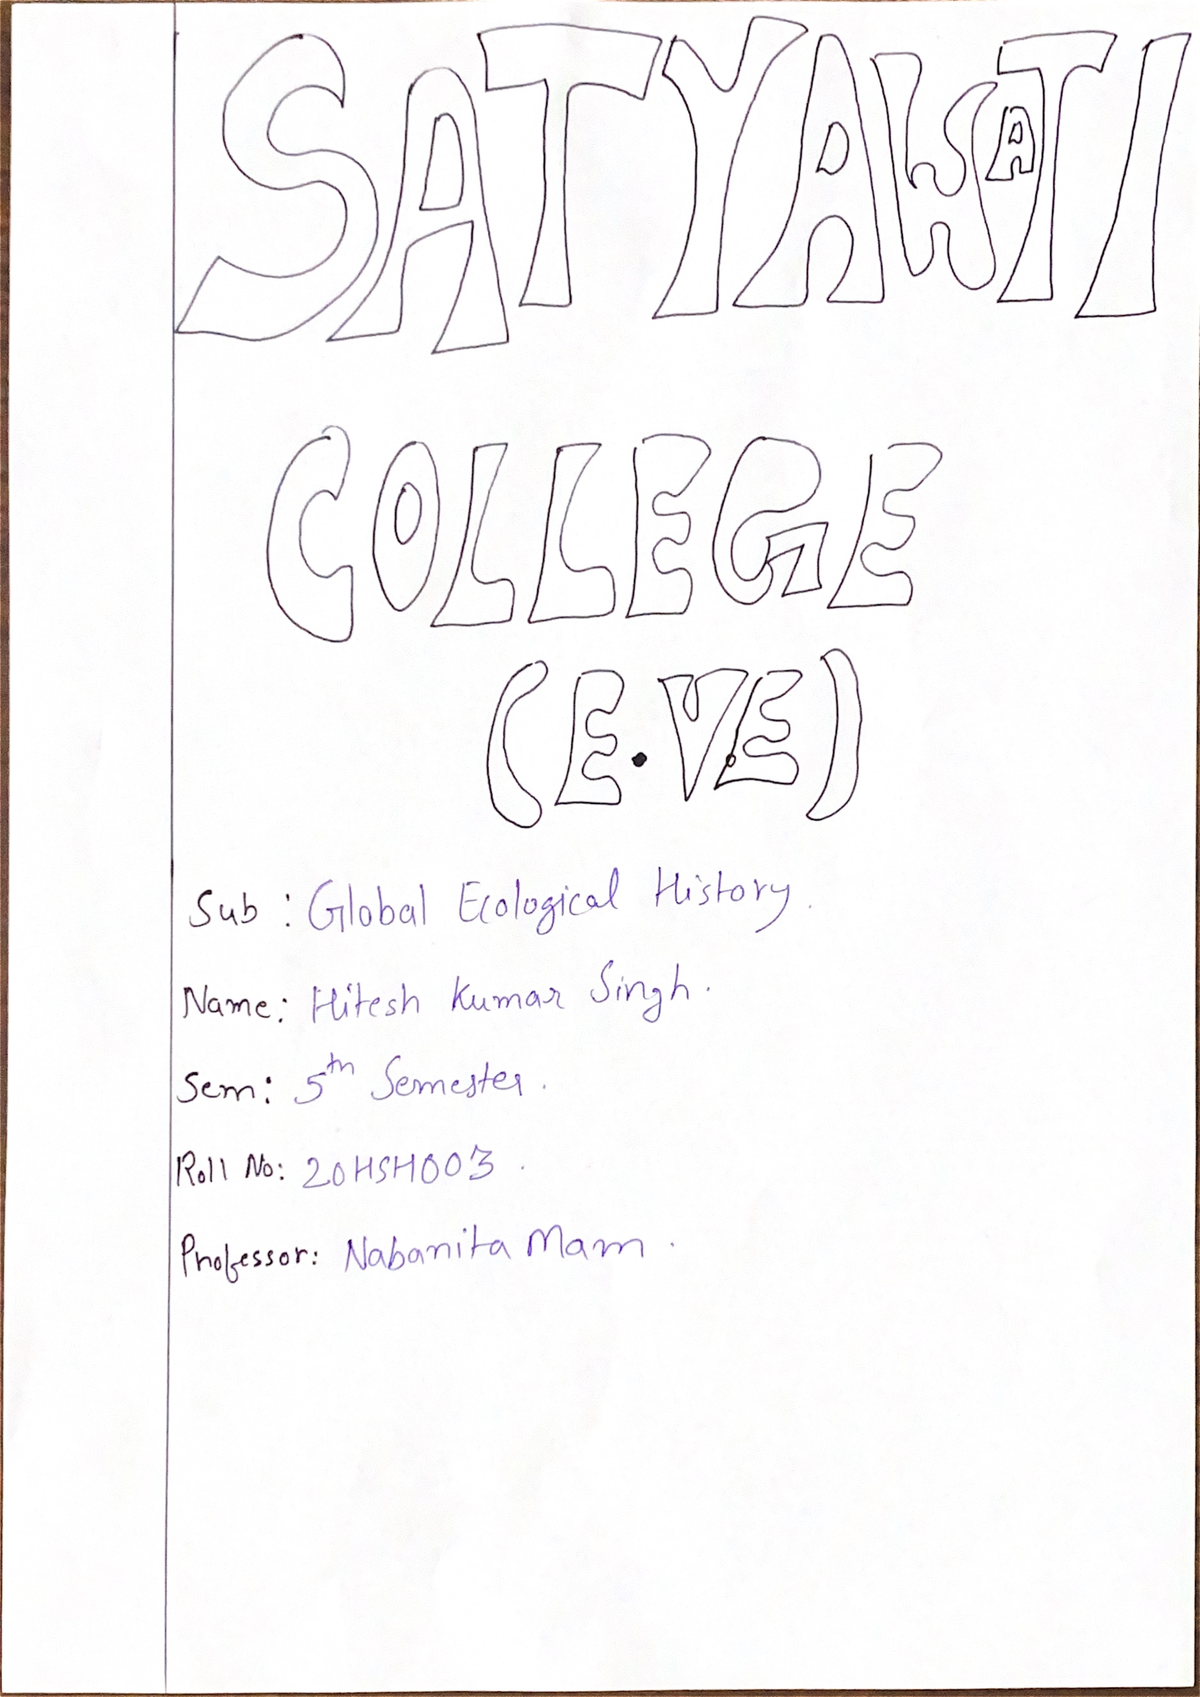 SATYAWATI
COLLEGE
(E.VE)
Sub : Global Ecological History.
Name: Hitesh Kumar Singh.
Sem: 5th Semester.
Roll No: 20HSH003.
Professor: Nabanita Mam.